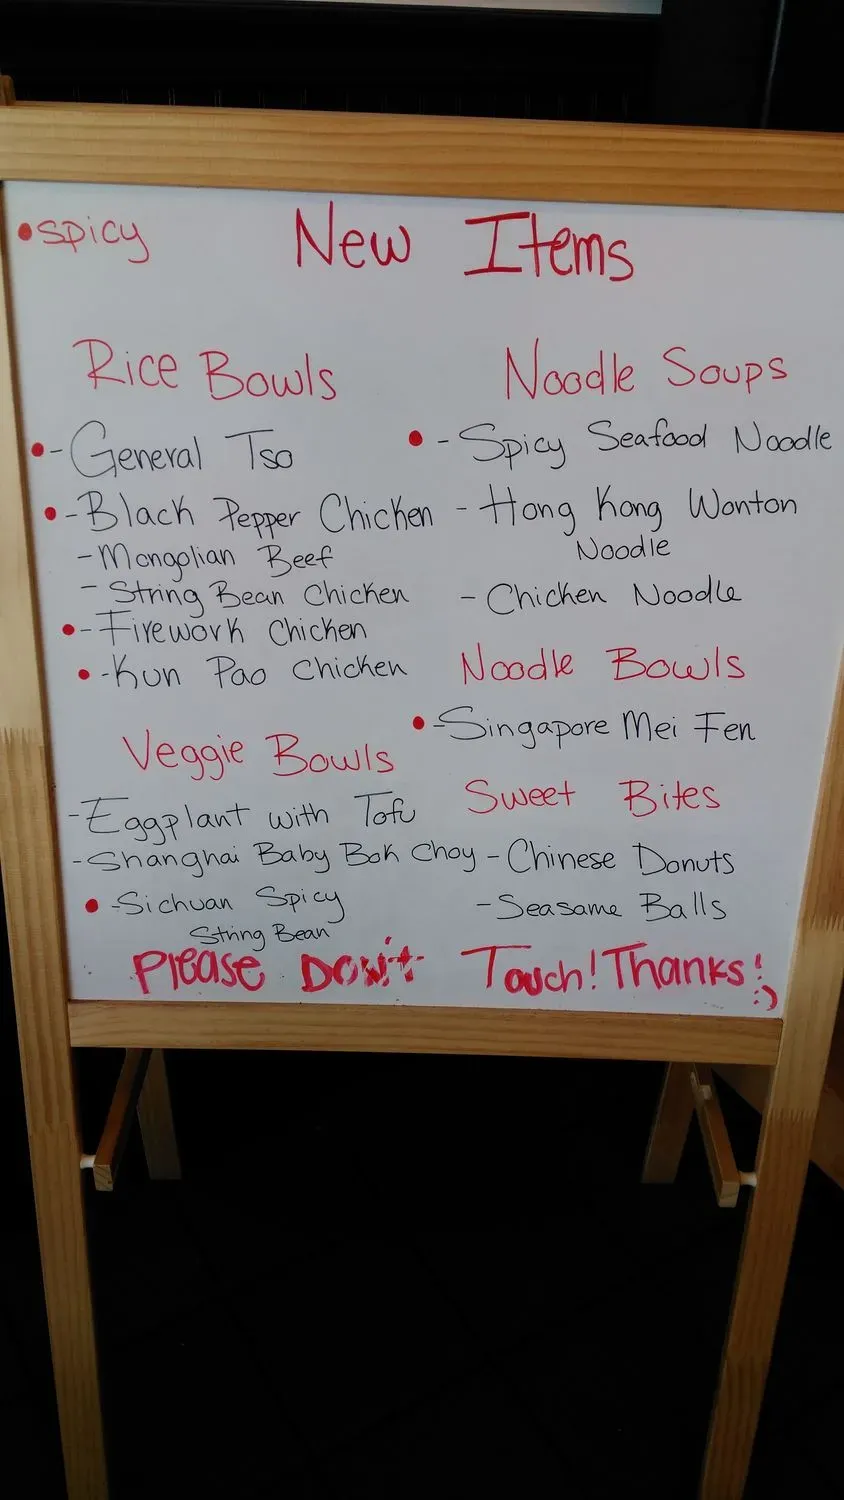 •spicy
New Items
Rice Bowls
•-General Tso
•-Black Pepper Chicken
-Mongolian Beef
-String Bean Chicken
•-Firework Chicken
•-Kun Pao Chicken
Veggie Bowls
-Eggplant with Tofu
-Shanghai Baby Bok Choy
•-Sichuan Spicy
String Bean
Noodle Soups
•-Spicy Seafood Noodle
-Hong Kong Wonton
Noodle
-Chicken Noodle
Noodle Bowls
•-Singapore Mei Fen
Sweet Bites
-Chinese Donuts
-Seasame Balls
Please Don't Touch! Thanks! :)